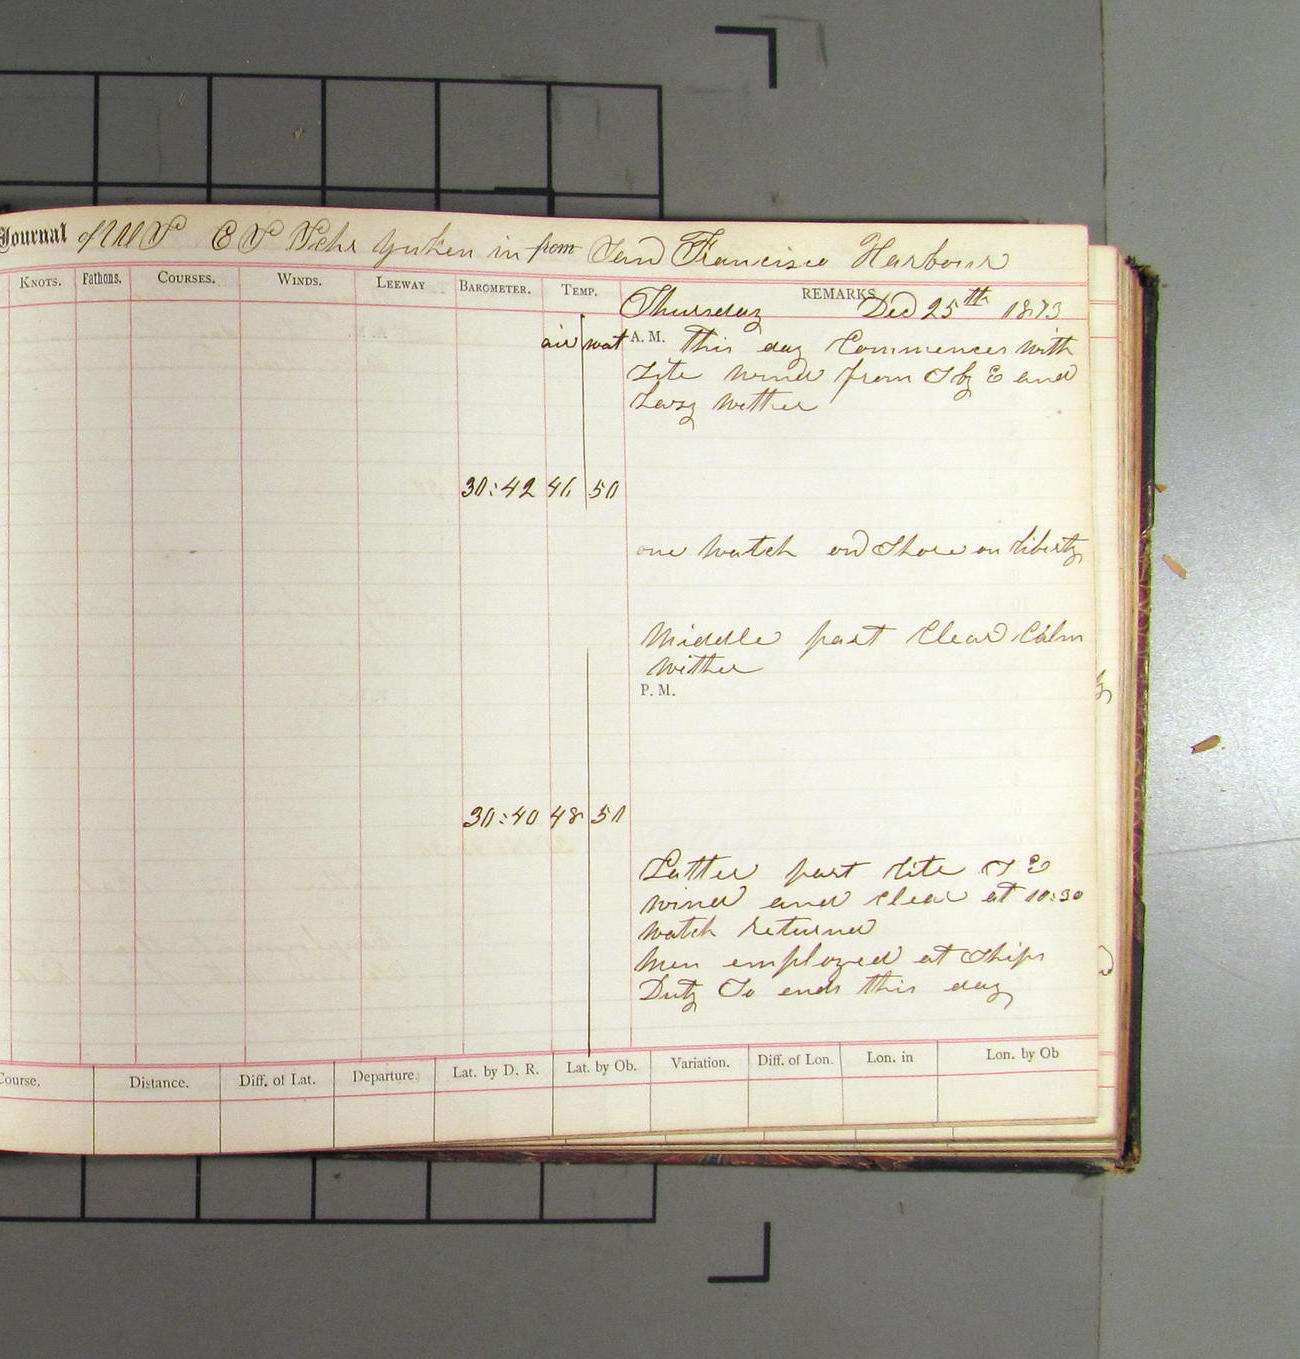 Journal of U S C S Schr Yukon in from San Francisco Harbour
KNOTS. Fathoms. COURSES. WINDS. LEEWAY BAROMETER. TEMP. REMARKS.
Thursday Dec 25th 1873
air wat A. M. This day Commences with
Lite wind from S by E and
Hazy wether
30:42 46 50
one watch on Shore on liberty
Middle part Clear Calm
wether
P. M.
30:40 48 50
Latter part lite S E
wind and clear at 10:30
watch returned
Men employed at Ships
Duty So ends this day
Course. Distance. Diff. of Lat. Departure. Lat. by D. R. Lat. by Ob. Variation. Diff. of Lon. Lon. in Lon. by Ob